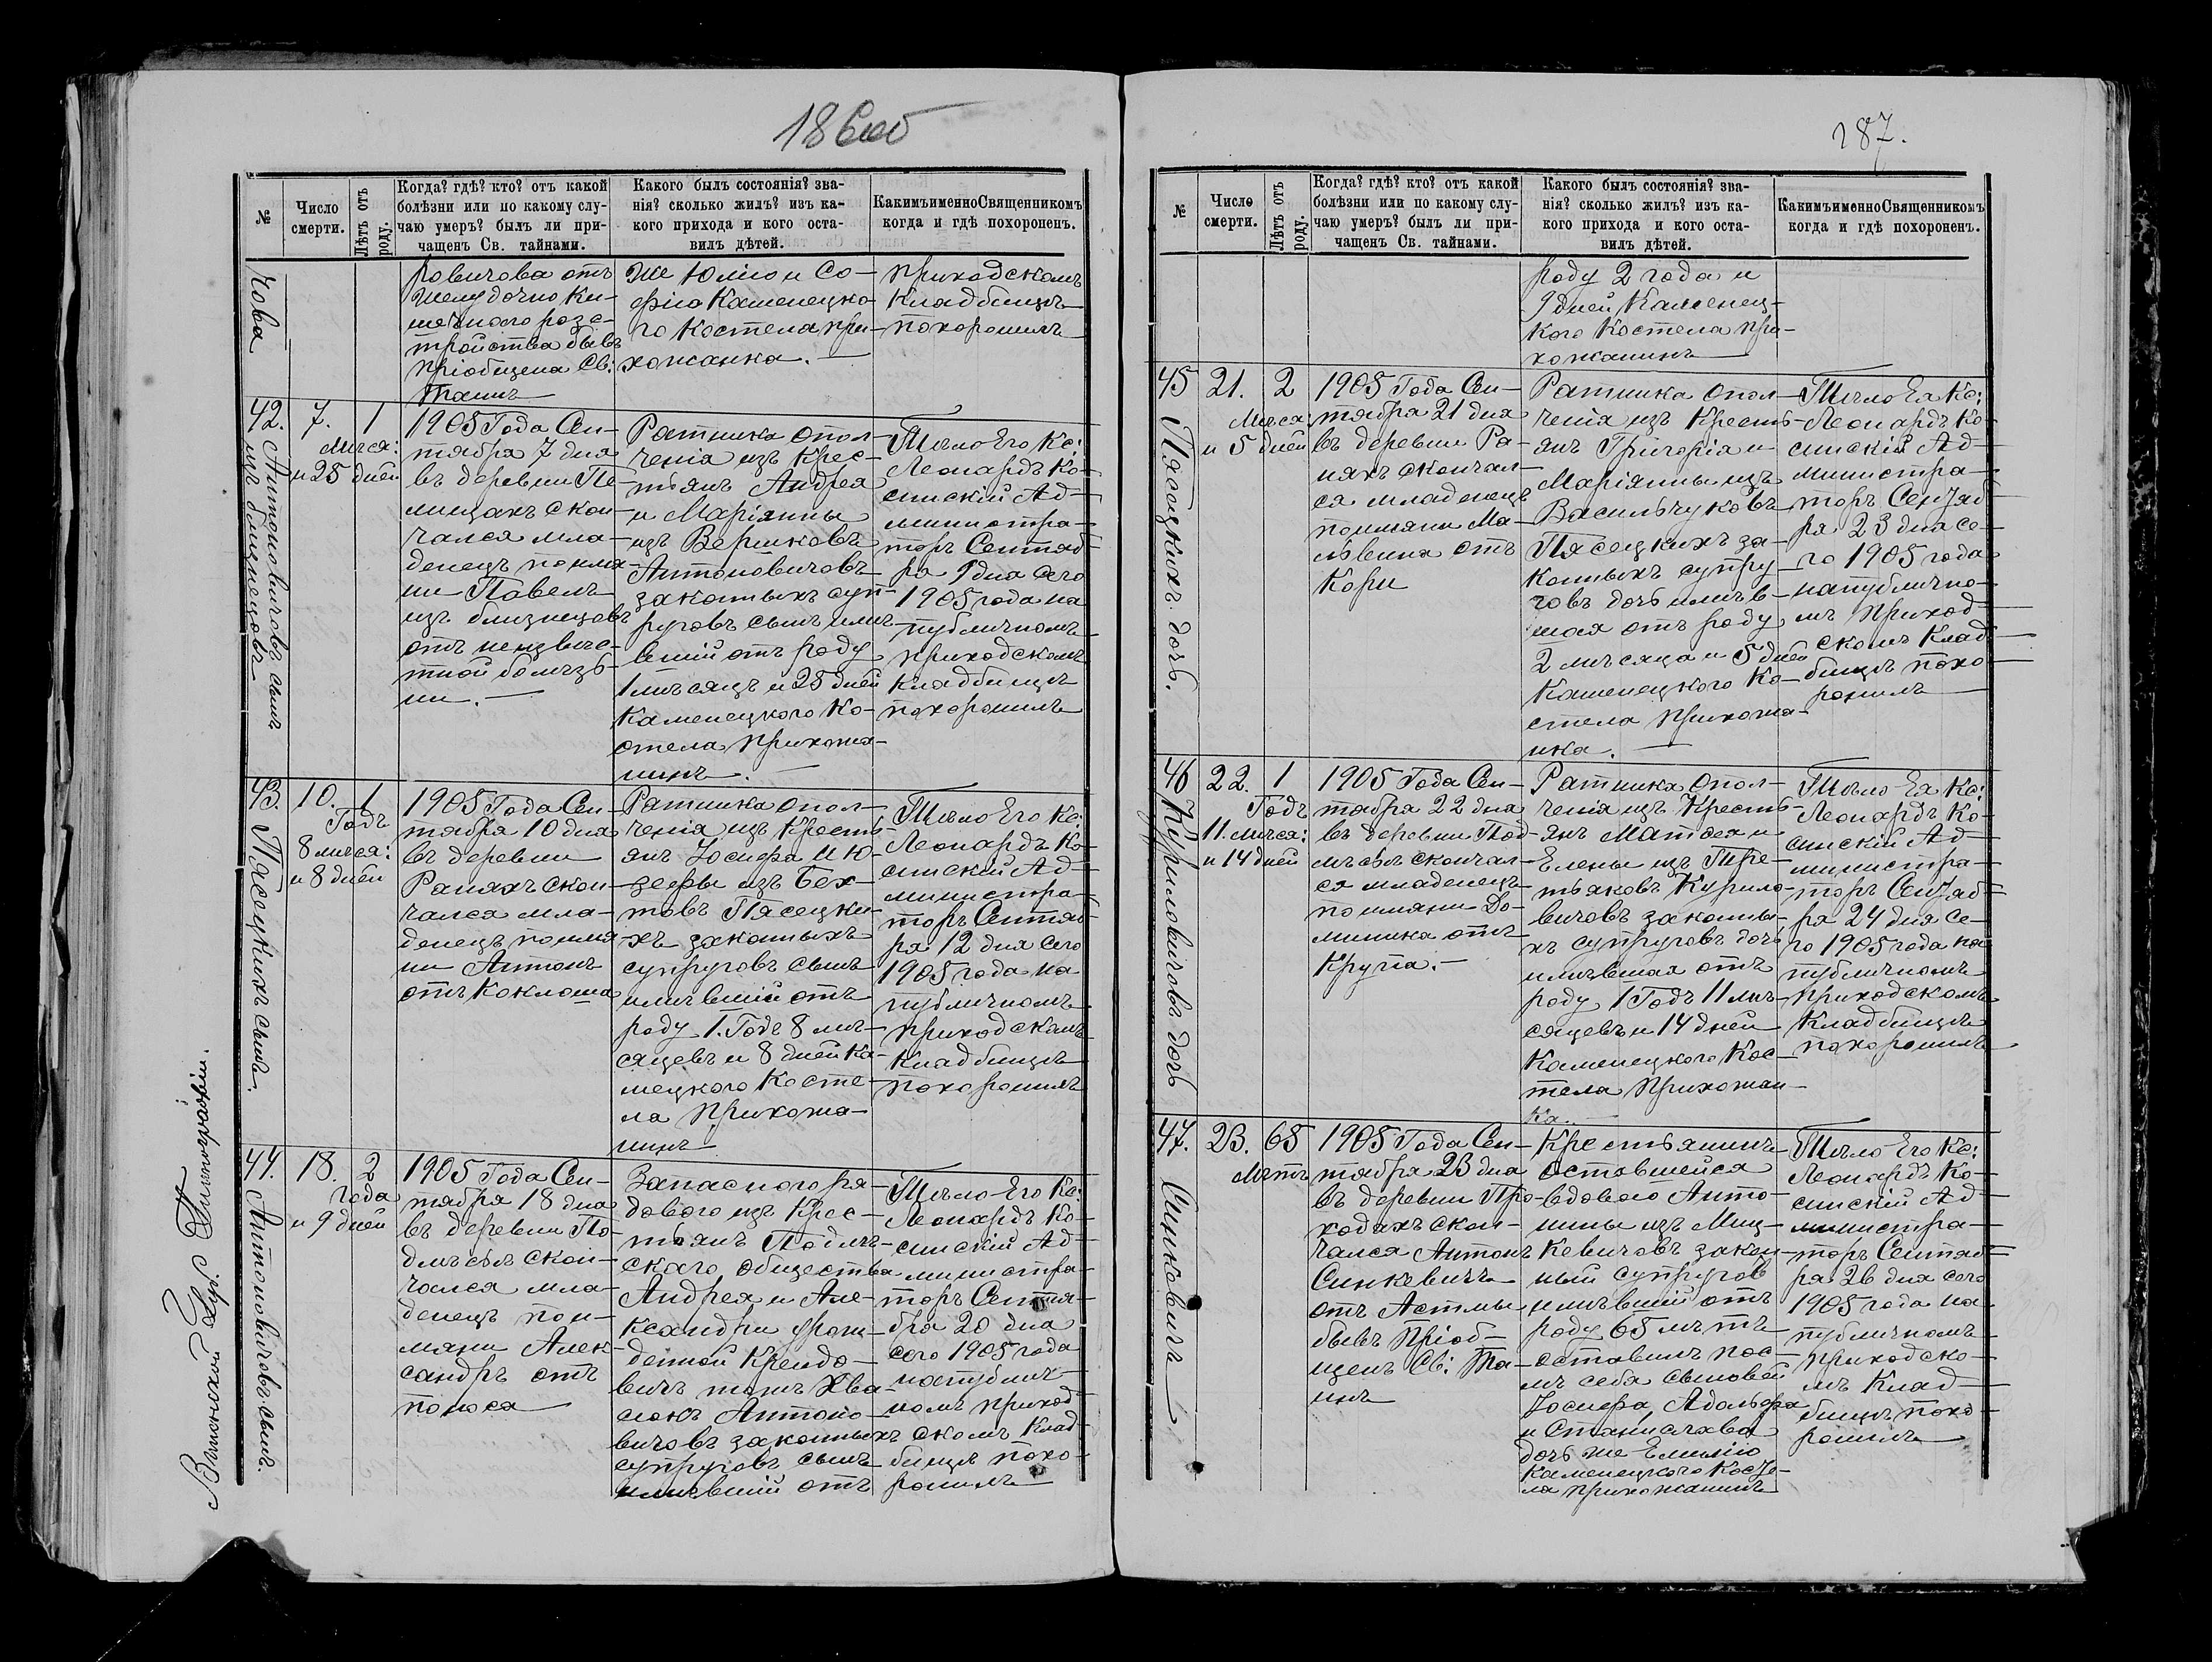 186об
№
Число смерти.
Лѣтъ отъ роду.
Когда? гдѣ? кто? отъ какой
болѣзни или по какому слу-
чаю умеръ? былъ ли при-
чащенъ Св. тайнами.
Какого былъ состоянія? зва-
нія? сколько жилъ? изъ ка-
кого прихода и кого оста-
вилъ дѣтей.
Какимъ именно Священникомъ
когда и гдѣ похороненъ.
чова
ровичова отъ
желудочно Ки-
шечного розс-
тройства бывъ
пріобщена Св:
Таинъ
же Юлію и Со-
фію Каменецко-
го Костела при-
хожанка.
приходскомъ
Кладбищѣ
похоронилъ
42.
Антоновичовъ сынъ
изъ близнецовъ
7.
1
мѣсяс:
и 25 дней
1905 Года Сен-
тября 7 дня
въ деревни Пе-
лищахъ скон-
чался мла-
денецъ поимя-
ни Павелъ
изъ близнецовъ
отъ неизвес-
тной болѣзь-
ни.
Ратника опол-
ченія изъ Крес-
тьянъ Андрея
и Маріянны
изъ Вериковъ
Антоновичовъ
законныхъ суп-
руговъ сынъ имѣ-
вшій отъ роду
1 мѣсяцъ и 25 дней
Каменецкого Ко-
стела прихожа-
нинъ.
Тѣло Его Кс:
Леонардъ Ко-
синскій Ад-
министра-
торъ Сентяб-
ря 9 дня сего
1905 года на
публичномъ
приходскомъ
Кладбищѣ
похоронилъ
43.
Пясецкихъ сынъ.
10.
1
Годъ
8 мѣсяс:
и 8 дней
1905 Года Сен-
тября 10 дня
въ деревни
Раняхъ скон-
чался мла-
денецъ поимя-
ни Антонъ
отъ Коклюша
Ратника опол-
ченія изъ Кресть-
янъ Іосифа и Ю-
зефы изъ Бех-
товъ Пясецки-
хъ законыхъ
супруговъ сынъ
имѣвшій отъ
роду 1. Годъ 8 мѣ-
сяцевъ и 8 дней Ка-
мецкого Косте-
ла прихожа-
нинъ
Тѣло Его Кс:
Леонардъ Ко-
синскій Ад-
министра-
торъ Сентяб-
ря 12 дня сего
1905 года на
публичномъ
приходскомъ
Кладбищѣ
похоронилъ
44.
Антоновичовъ сынъ.
18.
2
года
и 9 дней
1905 Года Сен-
тября 18 дня
въ деревни По-
длѣсѣ скон-
чался мла-
денецъ пои-
мяни Алек-
сандръ отъ
поноса
Запасного ря-
дового изъ Крес-
тьянъ Подлѣ-
ского общества
Андрея и Але-
ксандри урож-
денной Крендо-
вичъ тожъ Хва-
сюкъ Антоно-
вичовъ законныхъ
супруговъ сынъ
имѣвшій отъ
Тѣло Его Кс:
Леонардъ Ко-
синскій Ад-
министра-
торъ Сентя-
бра 20 дня
сего 1905 года
на публич-
номъ приход-
скомъ Клад-
бищѣ похо-
ронилъ
Виленской Губ. Типографіи.
187.
№
Число смерти.
Лѣтъ отъ роду.
Когда? гдѣ? кто? отъ какой
болѣзни или по какому слу-
чаю умеръ? былъ ли при-
чащенъ Св. тайнами.
Какого былъ состоянія? зва-
нія? сколько жилъ? изъ ка-
кого прихода и кого оста-
вилъ дѣтей.
Какимъ именно Священникомъ
когда и гдѣ похороненъ.
роду 2 года и
9 дней Каменец-
кого Костела при-
хожанинъ
45
Пясецкихъ дочь.
21.
2
мѣсяс:
и 5 дней
1905 Года Сен-
тября 21 дня
въ деревни Ра-
няхъ скончал-
ся младенецъ
поимяни Ма-
львина отъ
Кори
Ратника Опол-
ченія изъ Кресть-
янъ Григорія и
Маріянны изъ
Васильчуковъ
Пясецкихъ за-
конныхъ супру-
говъ дочь имѣв-
шая отъ роду
2 мѣсяца и 5 дней
Каменецкого Ко-
стела прихожа-
нка.
Тѣло Ея Кс:
Леонардъ Ко-
синскій Ад-
министра-
торъ Сентяб-
ря 23 дня се-
го 1905 года
на публично-
мъ приход-
скомъ Клад-
бищѣ похо-
ронилъ
46
Куриловичовъ дочь
22.
1
Годъ
11. мѣсяс:
и 14 дней
1905 Года Сен-
тября 22 дня
въ деревни Под-
лѣсѣ скончал-
ся младенецъ
поимяни До-
миника отъ
Крупа.
Ратника опол-
ченія изъ Кресть-
янъ Матвея и
Елены изъ Тре-
тьяковъ Курило-
вичовъ законны-
хъ супруговъ дочь
имѣвшая отъ
роду 1 Годъ 11 мѣ-
сяцевъ и 14 дней
Каменецкого Кос-
тела прихожан-
ка.
Тѣло Ея Кс:
Леонардъ Ко-
синскій Ад-
министра-
торъ Сентяб-
ря 24 дня се-
го 1905 года на
публичномъ
приходскомъ
Кладбищѣ
похоронилъ
47.
Синкевичъ
23.
65
Лѣтъ
1905 Года Сен-
тября 23 дня
въ деревни Про-
ходахъ скон-
чался Антонъ
Синкевичъ
отъ Астмы
бывъ Пріоб-
щенъ Св: Та-
инъ
Крестьянинъ
оставшейся
вдового Анто-
нины изъ Миц-
кевичовъ закон-
ный супругов
имѣвшій отъ
роду 65 лѣтъ
оставилъ пос-
лѣ себя сыновей
Іосифа, Адольфа
и Станислава
дочь же Емилію
Каменецкого Косте-
ла прихожанинъ
Тѣло Его Кс:
Леонардъ Ко-
синскій Ад-
министра-
торъ Сентяб-
ря 26 дня сего
1905 года на
публичномъ
приходско-
мъ Клад-
бищѣ похо-
ронилъ